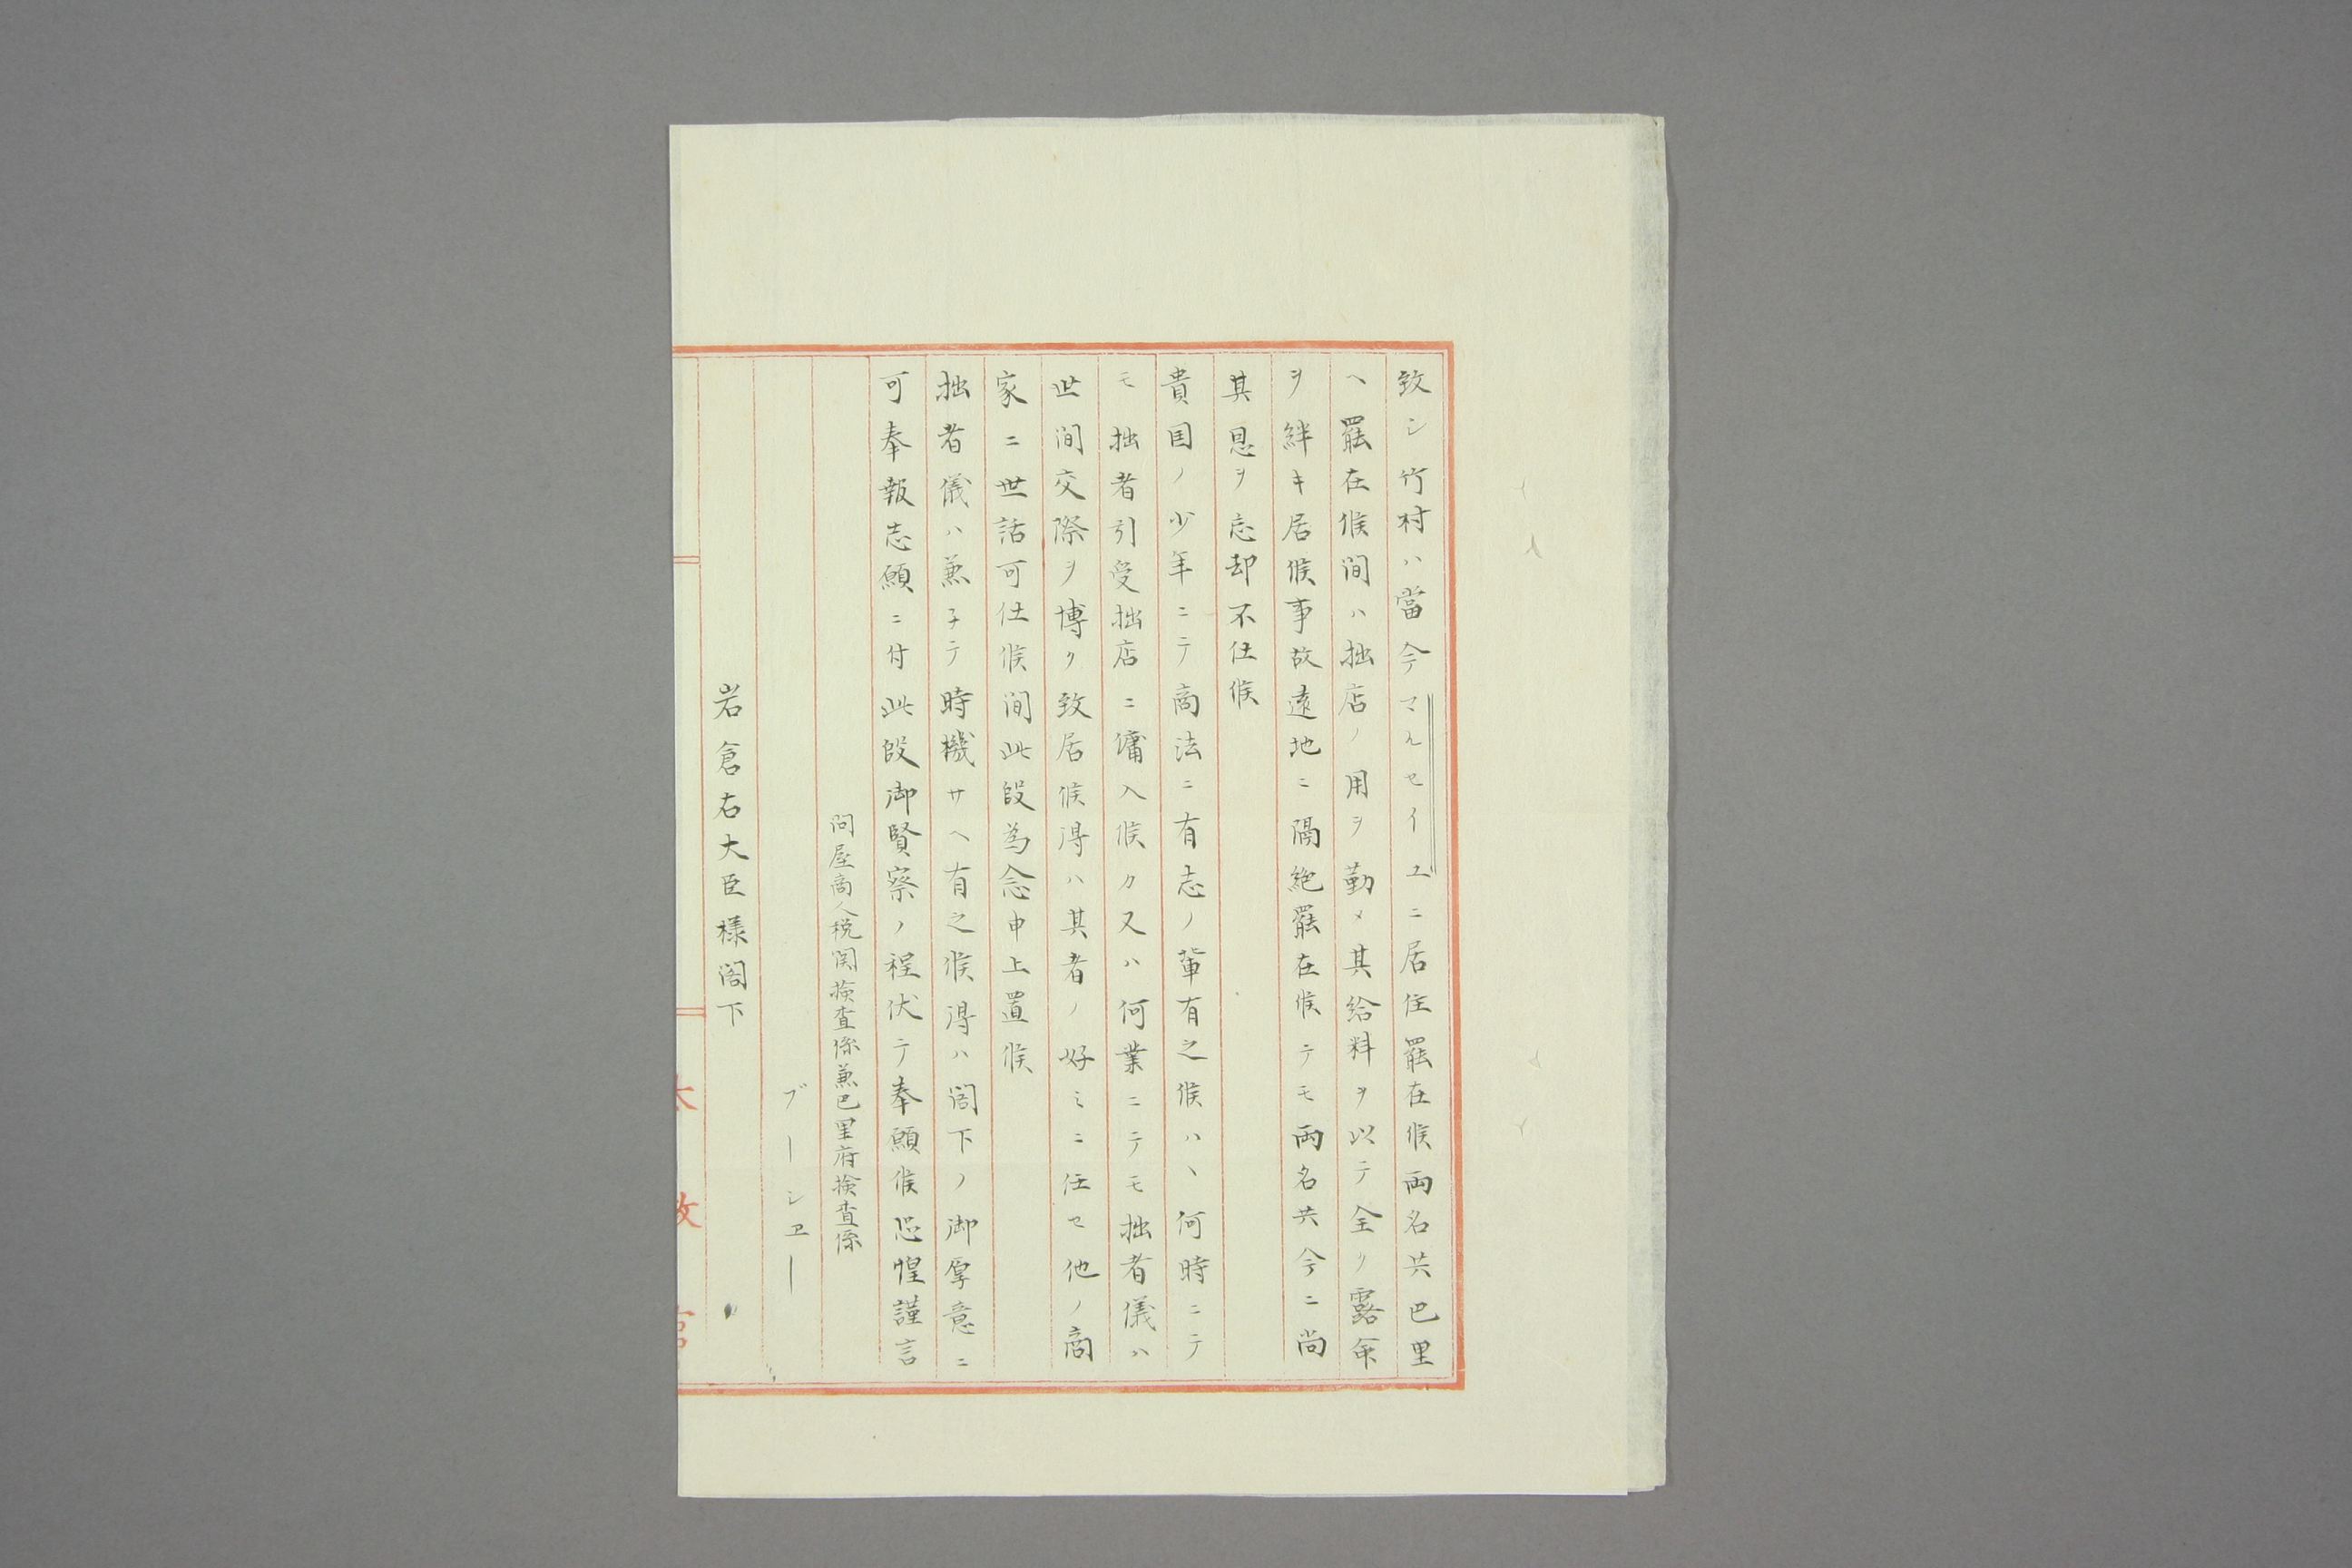 致シ竹村ハ當今マルセイユニ居住罷在候両名共巴里
ヘ罷在候間ハ拙店ノ用ヲ勤メ其給料ヲ以テ全ク露命
ヲ絆キ居候事故遠地ニ隔絶罷在候テモ両名共今ニ尚
其恩ヲ忘却不仕候
貴国ノ少年ニテ商法ニ有志ノ輩有之候ハヽ何時ニテ
モ拙者引受拙店ニ傭入候カ又ハ何業ニテモ拙者儀ハ
世间交際ヲ博ク致居候得ハ其者ノ好ミニ任セ他ノ商
家ニ世話可仕候间此段為念申上置候
拙者儀ハ兼子テ時機サヘ有之候得ハ閣下ノ御厚意ニ
可奉報志願ニ付此段御賢察ノ程伏テ奉願候恐惶謹言
問屋商人税関検査係兼巴里府検査係
ブーシヱー
岩倉右大臣様閣下
太政官